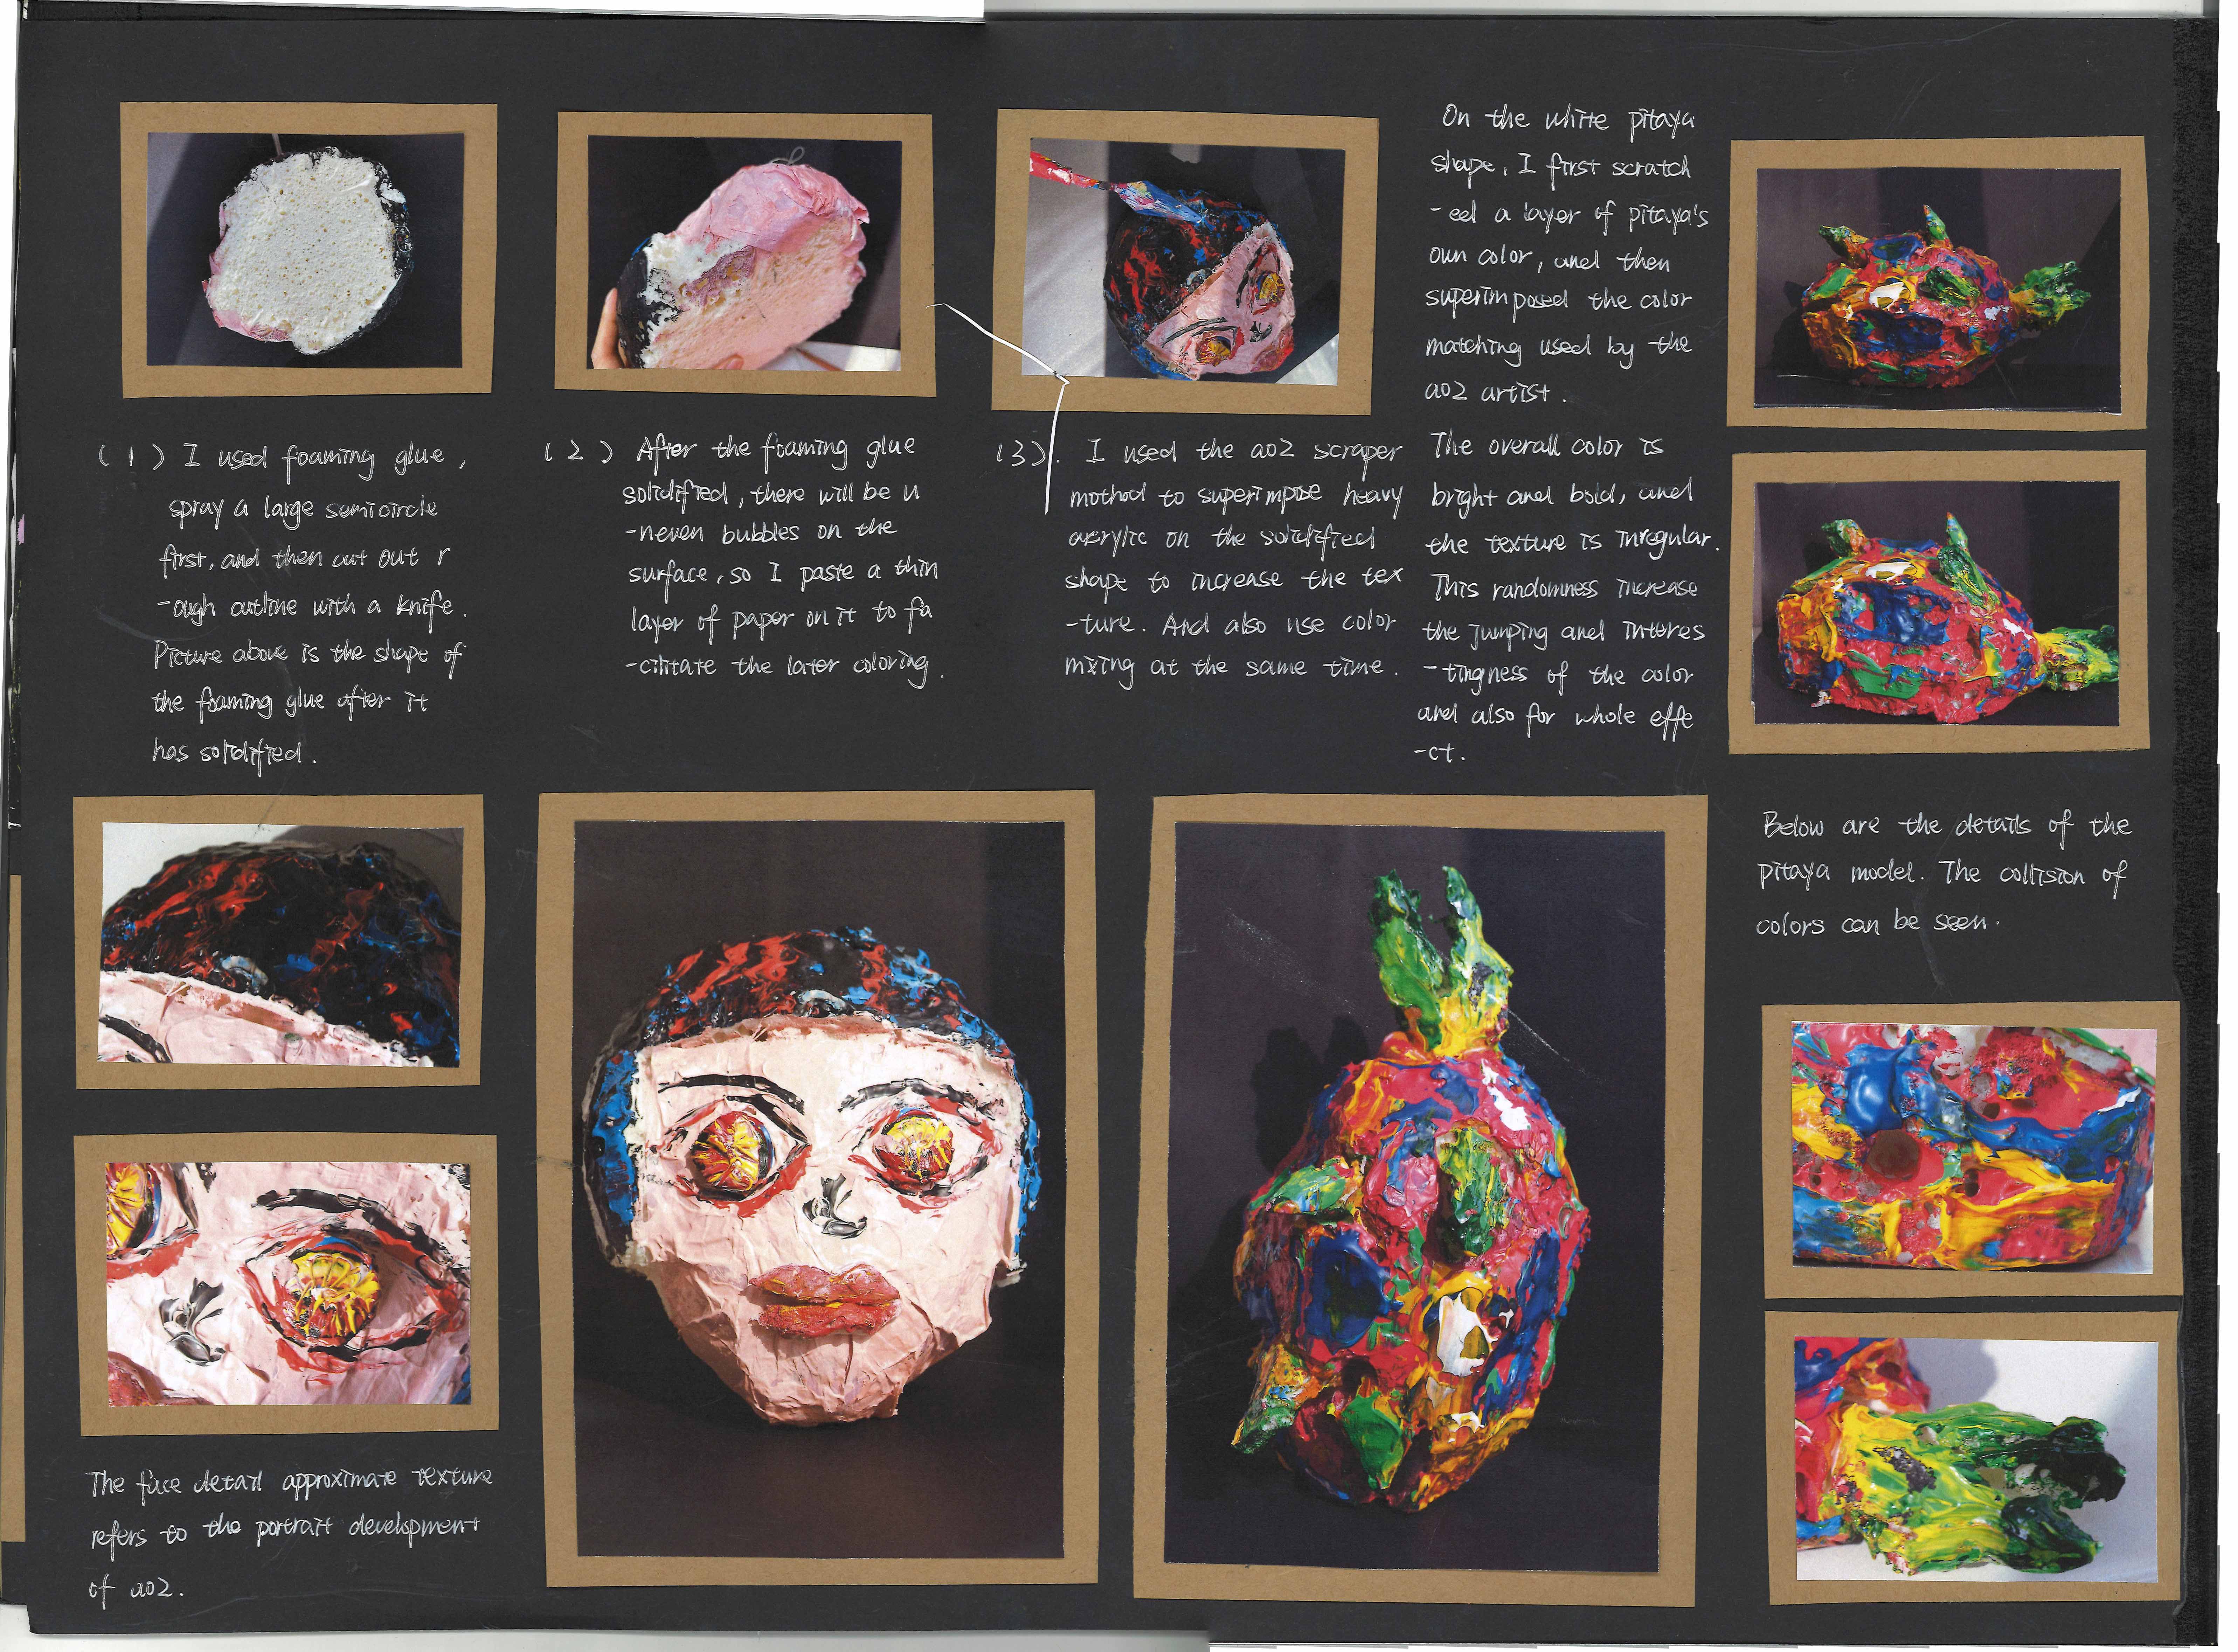 (1) I used foaming glue,
spray a large semicircle
first, and then cut out r
-ough outline with a knife.
Picture above is the shape of
the foaming glue after it
has solidified.
(2) After the foaming glue
solidified, there will be u
-neven bubbles on the
surface, so I paste a thin
layer of paper on it to fa
-cilitate the later coloring.
(3). I used the a02 scraper
mothod to superimpose heavy
acrylic on the solidified
shape to increase the tex
-ture. And also use color
mixing at the same time.
On the white pitaya
shape, I first scratch
-eed a layer of pitaya's
own color, and then
superimposed the color
matching used by the
a02 artist.
The overall color is
bright and bold, and
the texture is irregular.
This randomness increase
the jumping and interes
-tingness of the color
and also for whole effe
-ct.
Below are the details of the
pitaya model. The collision of
colors can be seen.
The face detail approximate texture
refers to the portrait development
of a02.